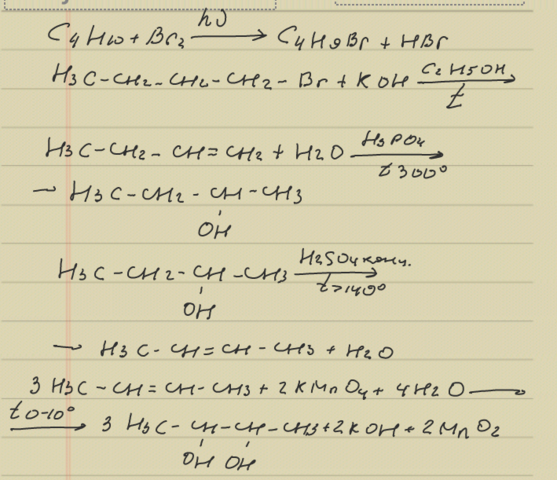 C4H10 + Br2 —hν→ C4H9Br + HBr
H3C-CH2-CH2-CH2-Br + KOH —C2H5OH, t→
H3C-CH2-CH=CH2 + H2O —H3PO4, t 300°→
→ H3C-CH2-CH-CH3
OH
H3C-CH2-CH-CH3 —H2SO4 конц., t>140°→
OH
→ H3C-CH=CH-CH3 + H2O
3 H3C-CH=CH-CH3 + 2KMnO4 + 4H2O —
t 0-10° → 3 H3C-CH-CH-CH3 + 2KOH + 2MnO2
OH OH